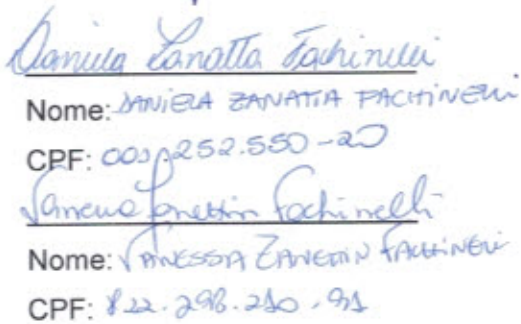 Daniela Zanatta Fachinelli
Nome: DANIELA ZANATTA FACHINELLI
CPF: 001.252.550-20
Vanessa Zanettin Fachinelli
Nome: VANESSA ZANETTIN FACHINELLI
CPF: 822.298.210-91